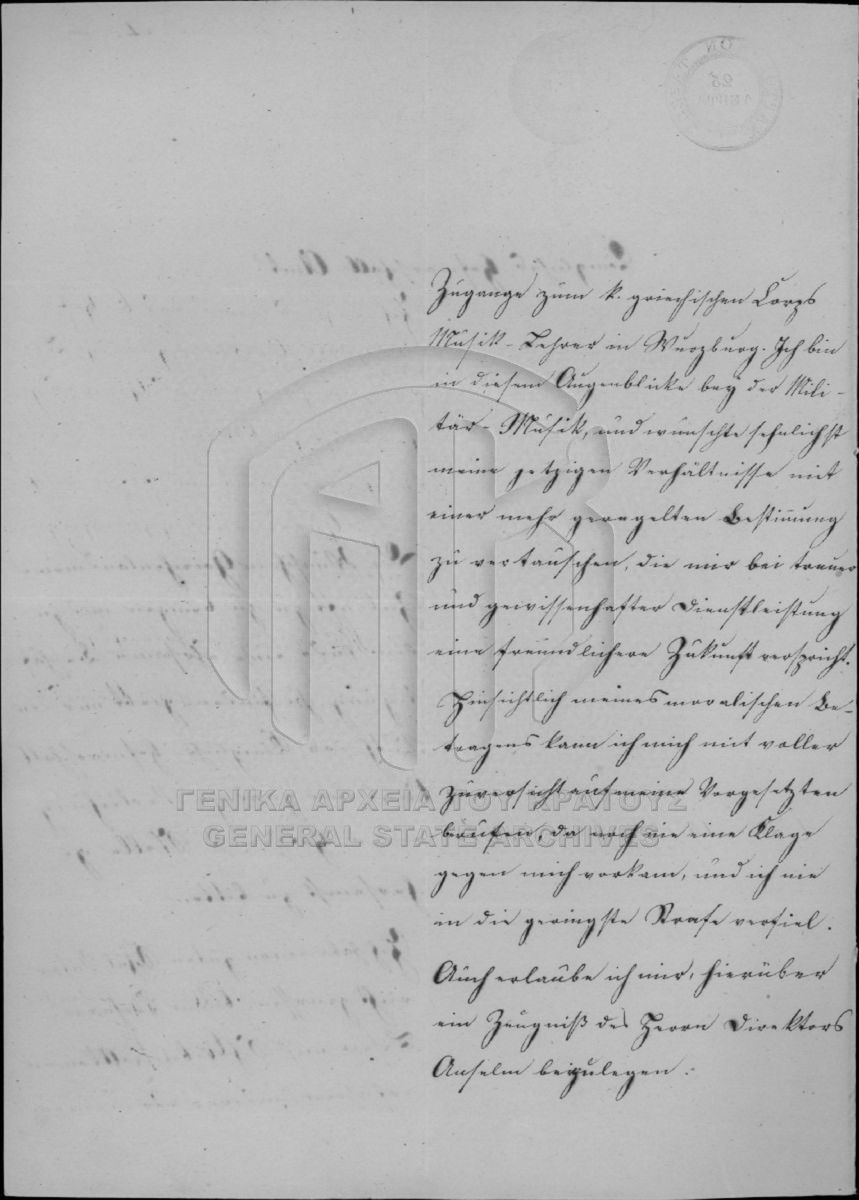 Zugange zum k. griechischen Corps
Musik-Lehrer in Würzburg. Ich bin
in diesem Augenblicke bey der Mili-
tär-Musik, und wünschte sehnlichst
meine jetzigen Verhältnisse mit
einer mehr geregelten Bestim̄ung
zu vertauschen, die mir bei treuer
und gewissenhafter Dienstleistung
eine freundlichere Zukunft verspricht.
Hinsichtlich meines moralischen Be-
tragens kann ich mich mit voller
Zuversicht auf meine Vorgesetzten
berufen, da noch nie eine Klage
gegen mich vorkam, und ich nie
in die geringste Strafe verfiel.
Auch erlaube ich mir, hierüber
ein Zeugniß des Herrn Direktors
Anselm beizulegen.
ΓΕΝΙΚΑ ΑΡΧΕΙΑ ΤΟΥ ΚΡΑΤΟΥΣ
GENERAL STATE ARCHIVES